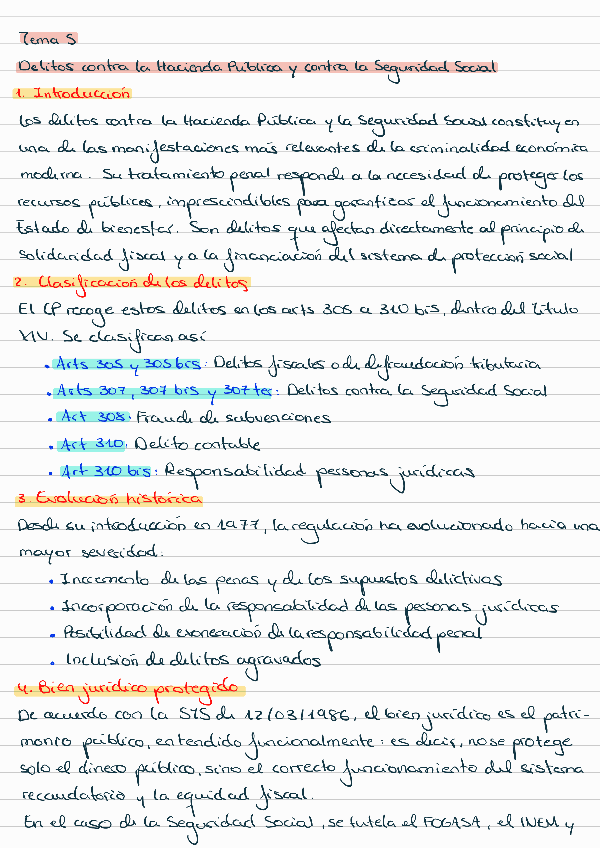 Tema 5
Delitos contra la Hacienda Pública y contra la Seguridad Social
1. Introducción
Los delitos contra la Hacienda Pública y la Seguridad Social constituyen
una de las manifestaciones más relevantes de la criminalidad económica
moderna. Su tratamiento penal responde a la necesidad de proteger los
recursos públicos, imprescindibles para garantizar el funcionamiento del
Estado de bienestar. Son delitos que afectan directamente al principio de
solidaridad fiscal y a la financiación del sistema de protección social
2. Clasificación de los delitos
El CP recoge estos delitos en los arts 305 a 310 bis, dentro del Título
XIV. Se clasifican así
• Arts 305 y 305 bis: Delitos fiscales o de defraudación tributaria
• Arts 307, 307 bis y 307 ter: Delitos contra la Seguridad Social
• Art 308: Fraude de subvenciones
• Art 310: Delito contable
• Art 310 bis: Responsabilidad personas jurídicas
3. Evolución histórica
Desde su introducción en 1977, la regulación ha evolucionado hacia una
mayor severidad:
• Incremento de las penas y de los supuestos delictivos
• Incorporación de la responsabilidad de las personas jurídicas
• Posibilidad de exoneración de la responsabilidad penal
• Inclusión de delitos agravados
4. Bien jurídico protegido
De acuerdo con la STS de 12/03/1986, el bien jurídico es el patri-
monio público, entendido funcionalmente: es decir, no se protege
solo el dinero público, sino el correcto funcionamiento del sistema
recaudatorio y la equidad fiscal.
En el caso de la Seguridad Social, se tutela el FOGASA, el INEM y